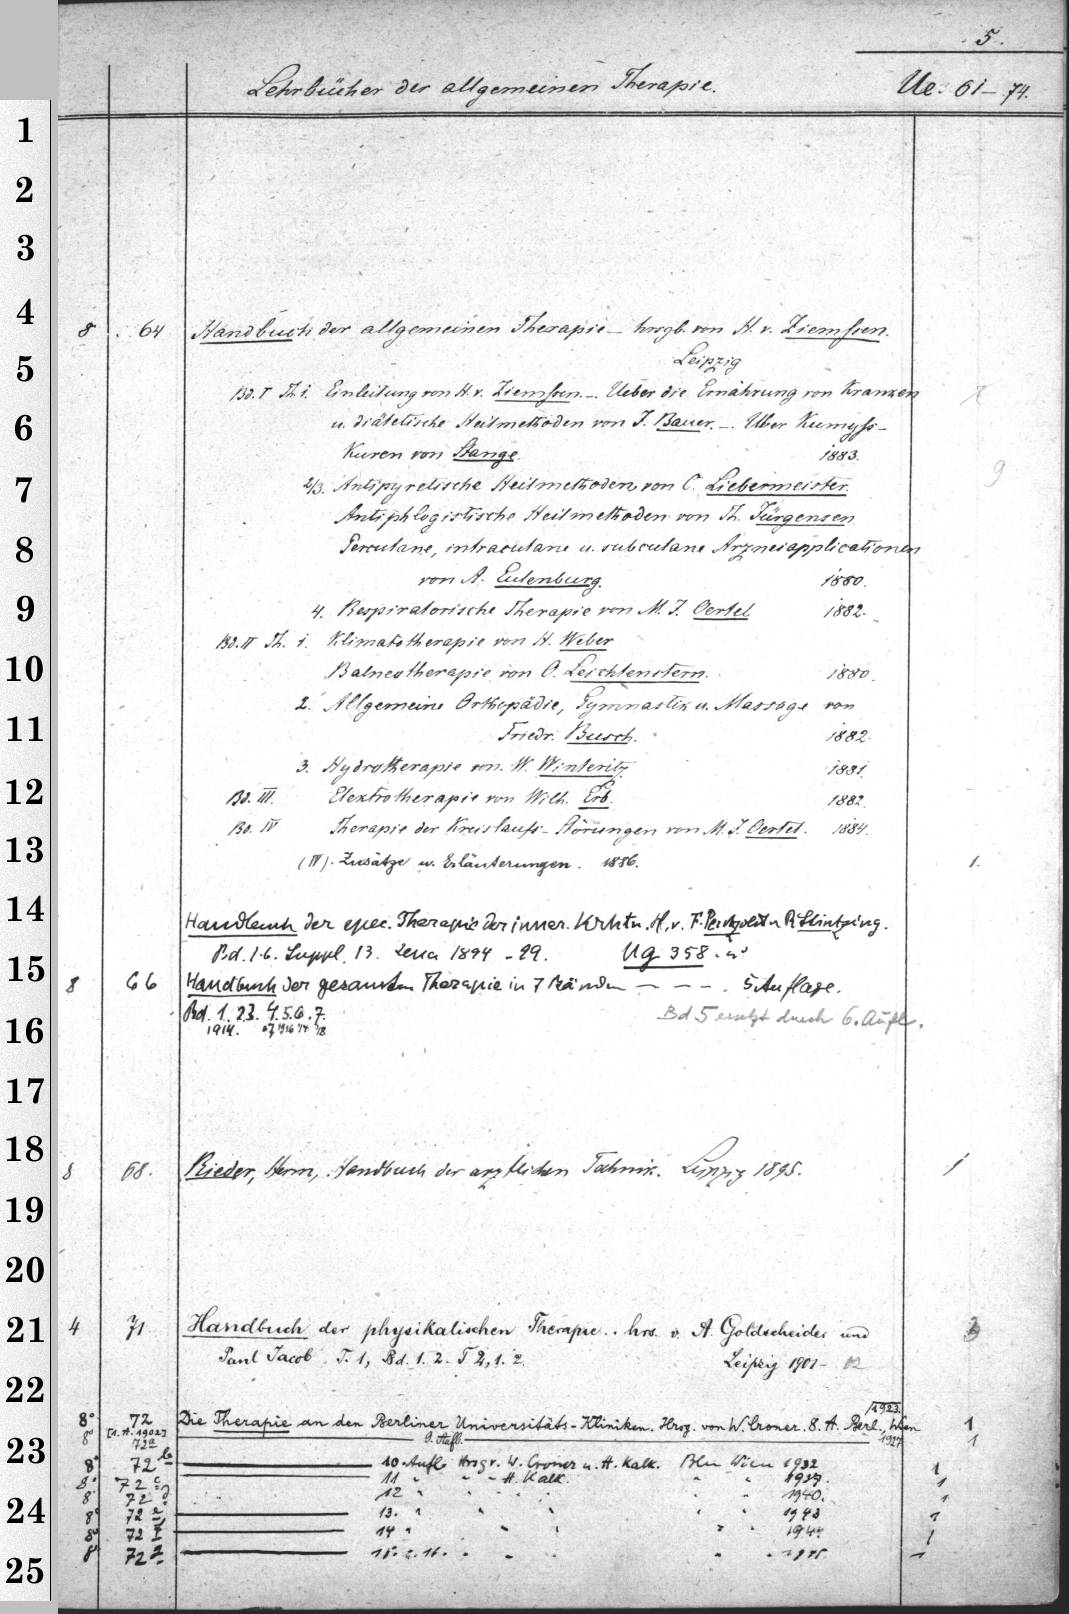 5.
Lehrbücher der allgemeinen Therapie. Ue. 61-74.
1
2
3
4
8 64 Handbuch der allgemeinen Therapie - hrsgb. von H. v. Ziemssen.
5
Leipzig
Bd. I Th 1. Einleitung von H. v. Ziemssen. - Ueber die Ernährung von Kranken
6
u. diätetische Heilmethoden von J. Bauer. - Über Kumyss-
Kuren von Stange. 1883.
9
7
2/3. Antipyretische Heilmethoden von C. Liebermeister.
Antiphlogistische Heilmethoden von Th. Jürgensen
8
Percutane, intracutane u. subcutane Arzneiapplicationen
von A. Eulenburg. 1880.
9
4. Respiratorische Therapie von M. J. Oertel 1882.
Bd. II Th. 1. Klimatotherapie von H. Weber
10
Balneotherapie von O. Leichtenstern. 1880.
2. Allgemeine Orthopädie, Gymnastik u. Massage von
11
Friedr. Busch. 1882.
3. Hydrotherapie von W. Winternitz 1881.
12
Bd. III. Elektrotherapie von Wilh. Erb. 1882.
Bd. IV Therapie der Kreislaufs-Störungen von M. J. Oertel. 1884.
13
(IV). Zusätze u. Erläuterungen. 1886. 1.
14
Handbuch der spec. Therapie der inner. Krkhtn. H. v. F. Penzoldt u. R. Stintzing.
Bd. 1-6. Suppl. 13. Jena 1894 - 99. Ug 358.
15
8 66 Handbuch der gesamten Therapie in 7 Bänden — — — . 5 Auflage.
Bd. 1. 2 3. 4. 5. 6. 7.
Bd 5 ersetzt durch 6. Aufl.
1914.
16
17
18
8 68. Rieder, Herm., Handbuch der ärztlichen Technik. Leipzig 1895. 1
19
20
21
4 71 Handbuch der physikalischen Therapie.. hrs. v. A. Goldscheider und
Paul Jacob T. 1, Bd. 1. 2. T 2, 1. 2. Leipzig 1901- 02
22
1923.
8° 72 Die Therapie an den Berliner Universitäts-Kliniken. Hrsg. von W. Croner. 8. A. Berl., Wien 1
[1. A. 1902]
8° 72a 9. Aufl. 1927 1
23
8° 72b 10 Aufl. Hrsg v. W. Croner u. H. Kalk. Bln Wien 1932 1
8° 72c 11 " " - H. Kalk. " " 1937. 1
8° 72d 12 " " " " " 1940. 1
24
8° 72e 13. " " " " " 1943 1
8° 72f 14 " " " " " 1944 1
8° 72g 15. u. 16. " " " " " 1945 1
25